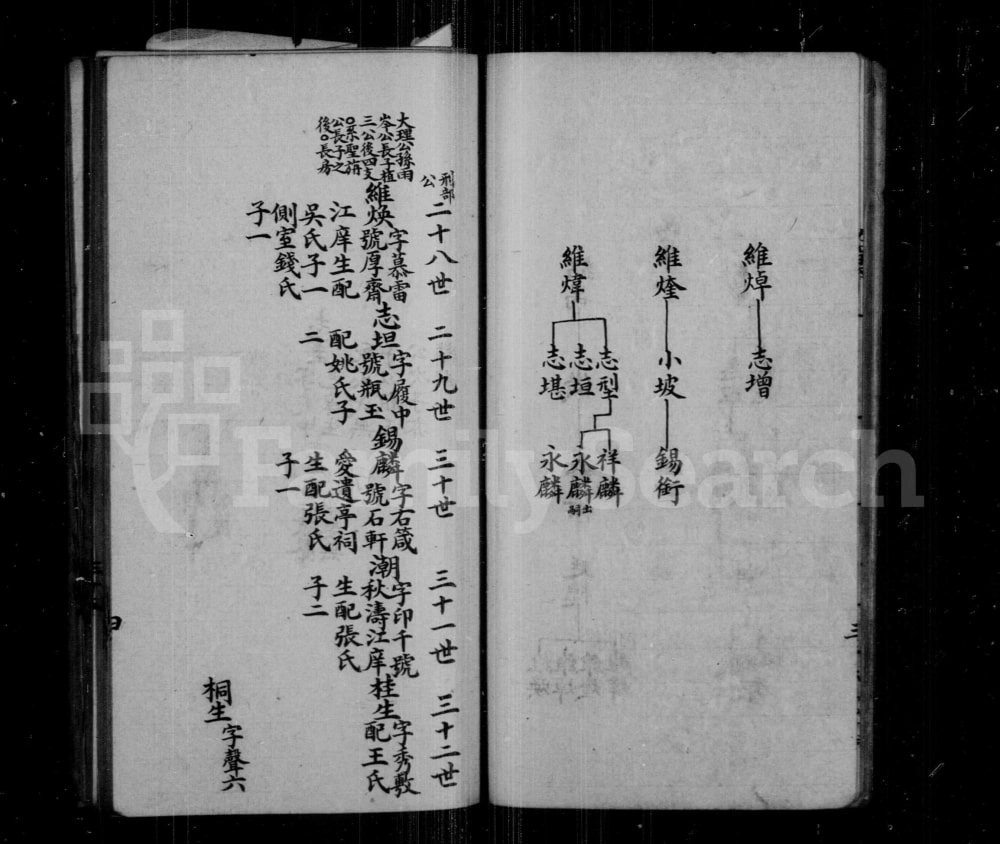 維焯 志增
維煃 小坡 錫銜
維煒
志型 志垣 志堪
祥麟 永麟出嗣 永麟
三
刑部公
二十八世 二十九世 三十世 三十一世 三十二世
大理公
岑公長子植
三公後四支
公長子之
後○長房
維煥字慕雷
號厚齋
江庠生配
吳氏子一
側室錢氏
子一
志坦字履中
號瓶玉
配姚氏子
二
錫麟字右箴
號石軒
愛遺亭祠
生配張氏
子一
潮字印千號
秋濤江庠
生配張氏
子二
桂生字秀敷
配王氏
桐生字聲六
FamilySearch